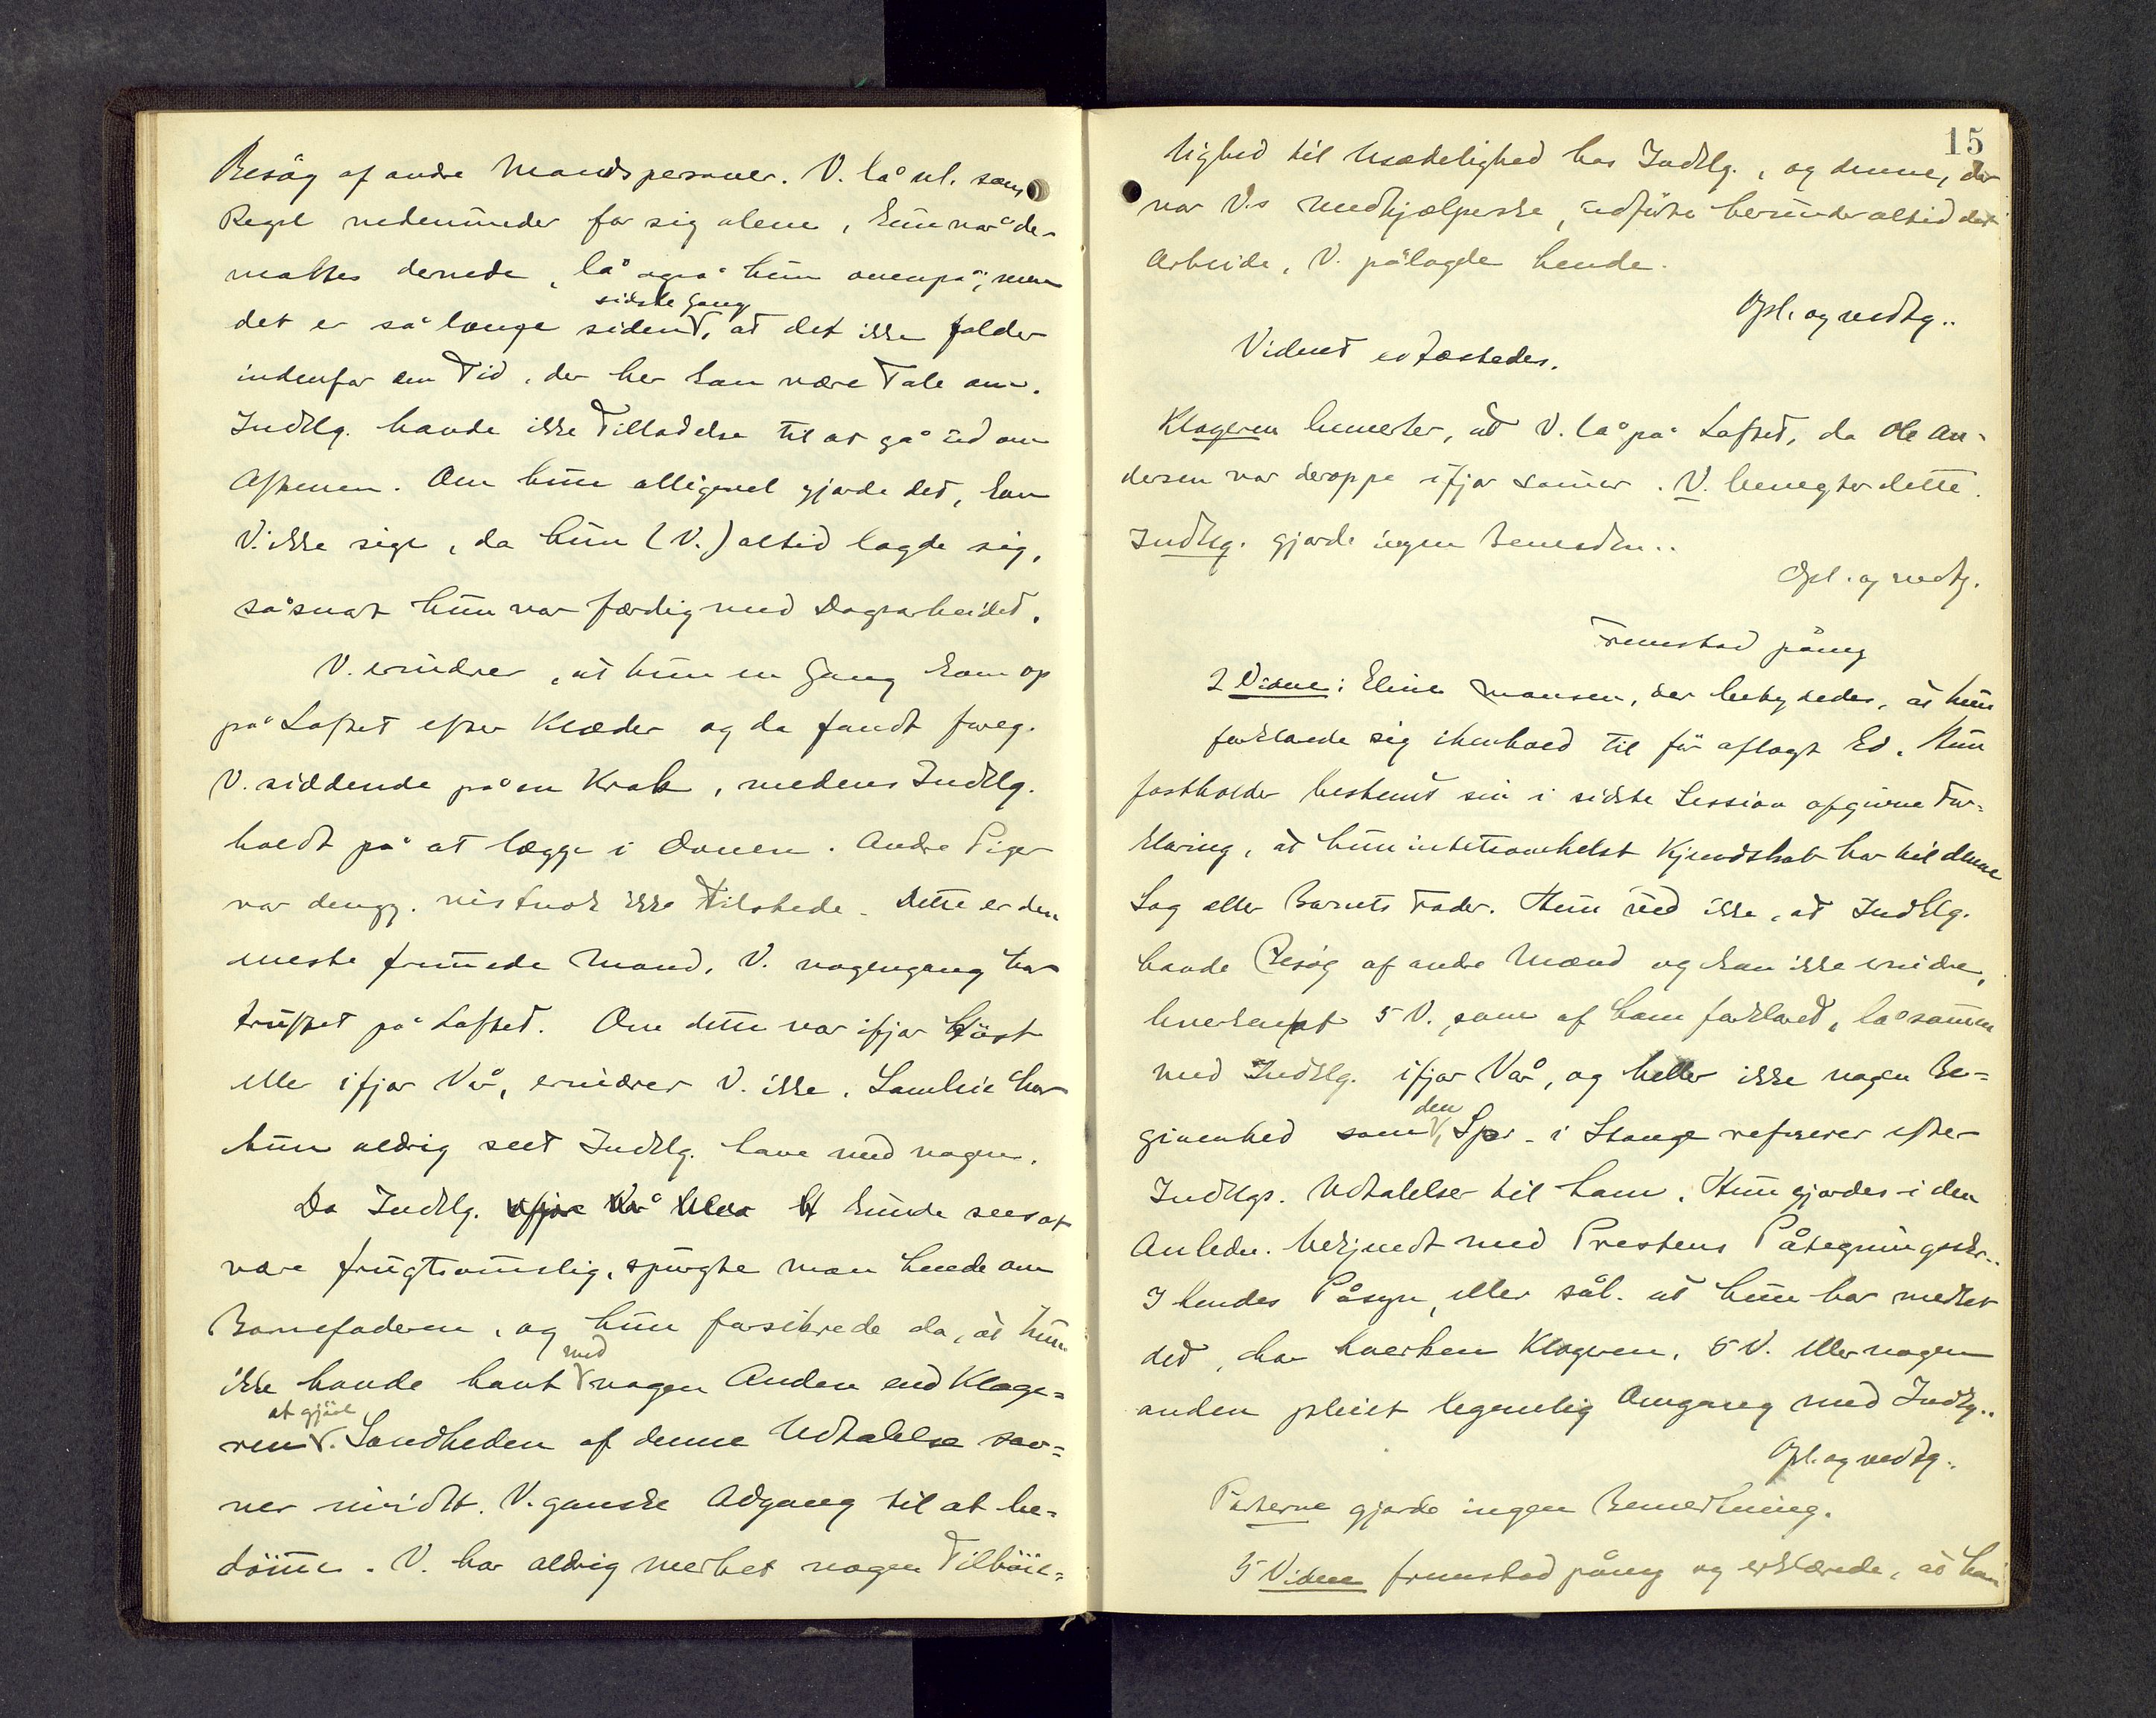 Besøg af andre Mandspersoner. V. lå nl. som
Regel nedenunder for sig alene, kun når de-
maltes dernede, lå også hun ovenpå; men
det er så længe siden sidste Gang, at det ikke falder
indenfor den Tid, der her kan være Tale om.
Indklg. havde ikke Tilladelse til at gå ud om
Aftenen. Om hun alligevel gjorde det, kan
V. ikke sige, da hun (V.) altid lagde sig,
såsnart hun var færdig med Dagsarbeidet.
V. erindrer, at hun en Gang kom op
på Loftet efter Klæder og da fandt foreg.
V. siddende på en Krak, medens Indklg.
holdt på at lægge i Ovnen. Andre Piger
var dengg. vistnok ikke tilstede. Dette er den
eneste fremmede Mand, V. nogengang har
truffet på Loftet. Om dette var ifjor Høst
eller ifjor Vår, erindrer V. ikke. Samleie har
hun aldrig seet Indklg. have med nogen.
Da Indklg. kunde sees at
være frugtsommelig, spurgte man hende om
Barnefaderen, og hun forsikrede da, at hun
ikke havde havt med nogen Anden end Klage=
ren at gjøre. Sandheden af denne Udtalelse sav=
ner imidlt. V. ganske Adgang til at be=
dømme. V. har aldrig merket nogen Tilbøie=
15
lighed til Usædelighed hos Indklg., og denne, der
var V.s Medhjælperske, udførte herunder altid det
Arbeide, V. pålagde hende.
Opl. og vedtg..
Vidnet edfæstedes.
Klageren bemerker, at V. lå på Loftet, da Ole An-
dersen var deroppe ifjor Sommer. V. benegter dette.
Indklg. gjorde ingen Bemerkn..
Opl. og vedtg.
Fremstod påny
2 Vidne: Eline Hansen, der betydedes, at hun
forklarede sig ihenhold til før aflagt Ed. Hun
fastholder bestemt sin i sidste Session afgivne For=
klaring, at hun intetsomhelst Kjendskab har til denne
Sag eller Barnets Fader. Hun ved ikke, at Indklg.
havde Besøg af andre Mænd og kan ikke erindre,
hverken at 5 V., som af ham forklaret, lå sammen
med Indklg. ifjor Vår, og heller ikke nogen Be=
givenhed som den Spr. i Stange refererer efter
Indklgs. Udtalelser til ham. Hun gjordes i den
Anledn. bekjendt med Prestens Påtegningsskr..
I hendes Påsyn, eller sål. at hun har merket
det, har hverken Klageren, 5 V. eller nogen
anden pleiet legemlig Omgang med Indklg..
Opl. og vedtg..
Parterne gjorde ingen Bemerkning.
5 Vidne fremstod påny og erklærede, at han